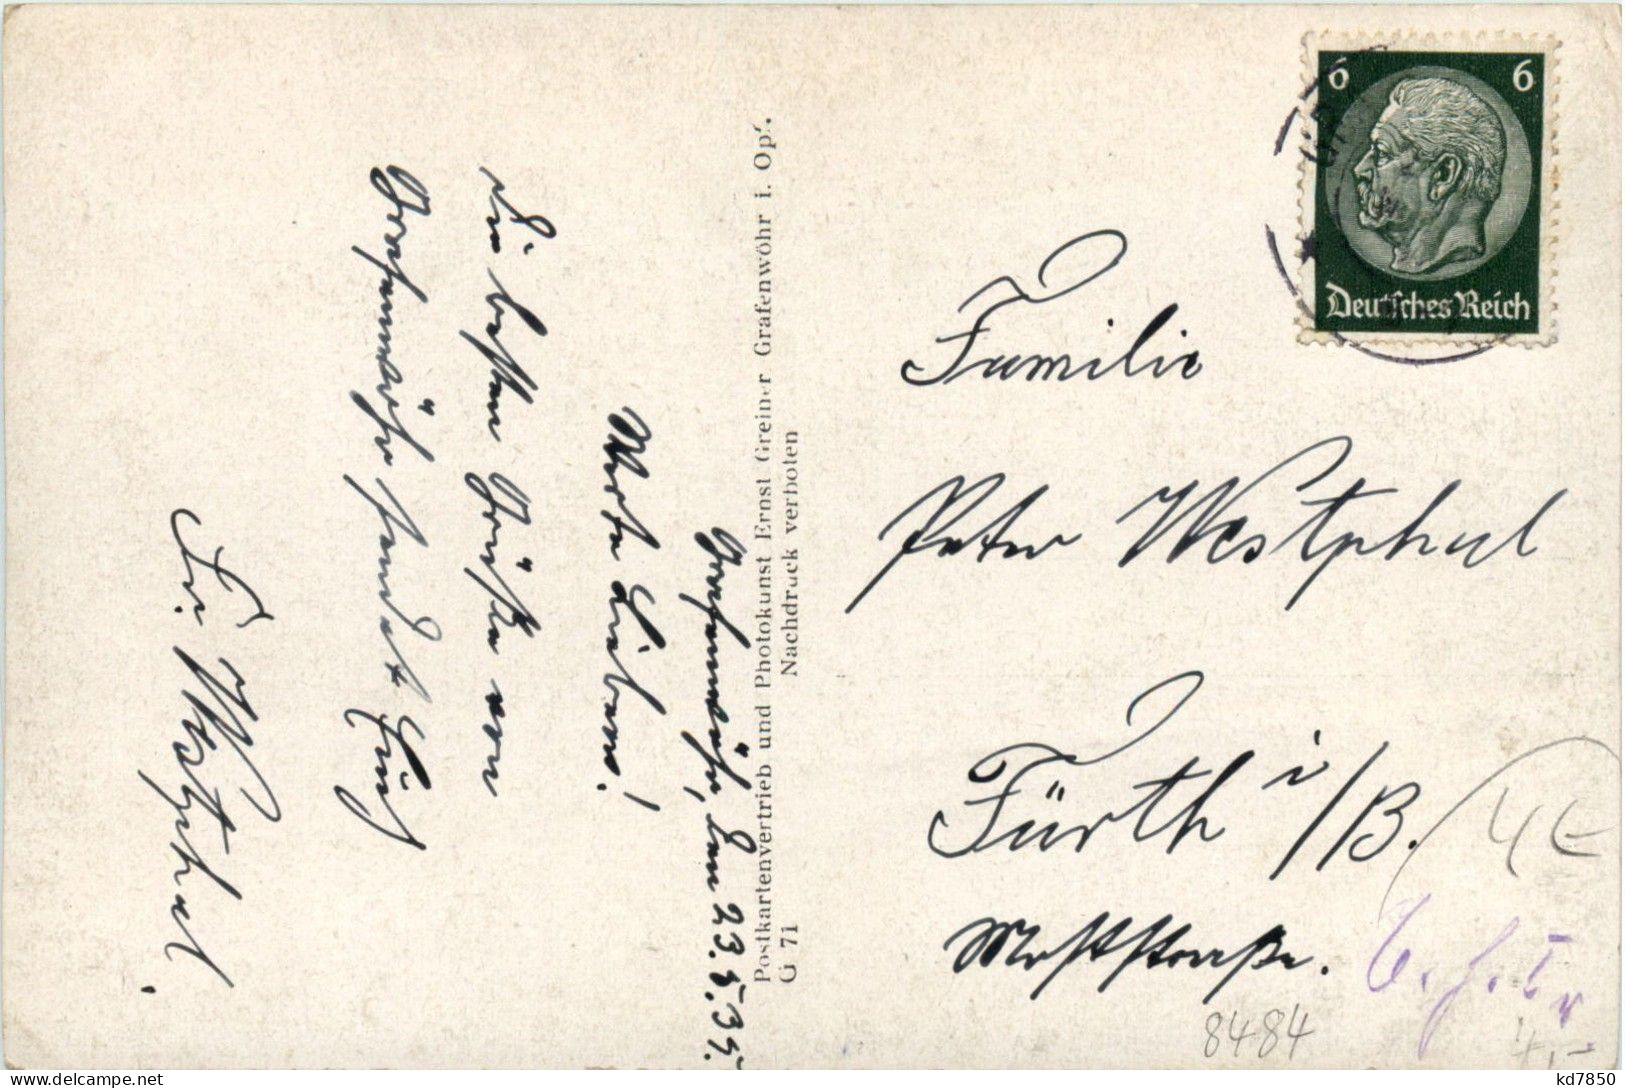 Grafenwöhr, den 23.5.35.
Meine Lieben!
Die besten Grüße von
Grafenwöhr sendet Euch
Fr. Westphal.
Postkartenvertrieb und Photokunst Ernst Greiner Grafenwöhr i. Opf.
Nachdruck verboten
G 71
6 6
Deutsches Reich
Familie
Peter Westphal
Fürth i/B.
8484
4,-
kd7850